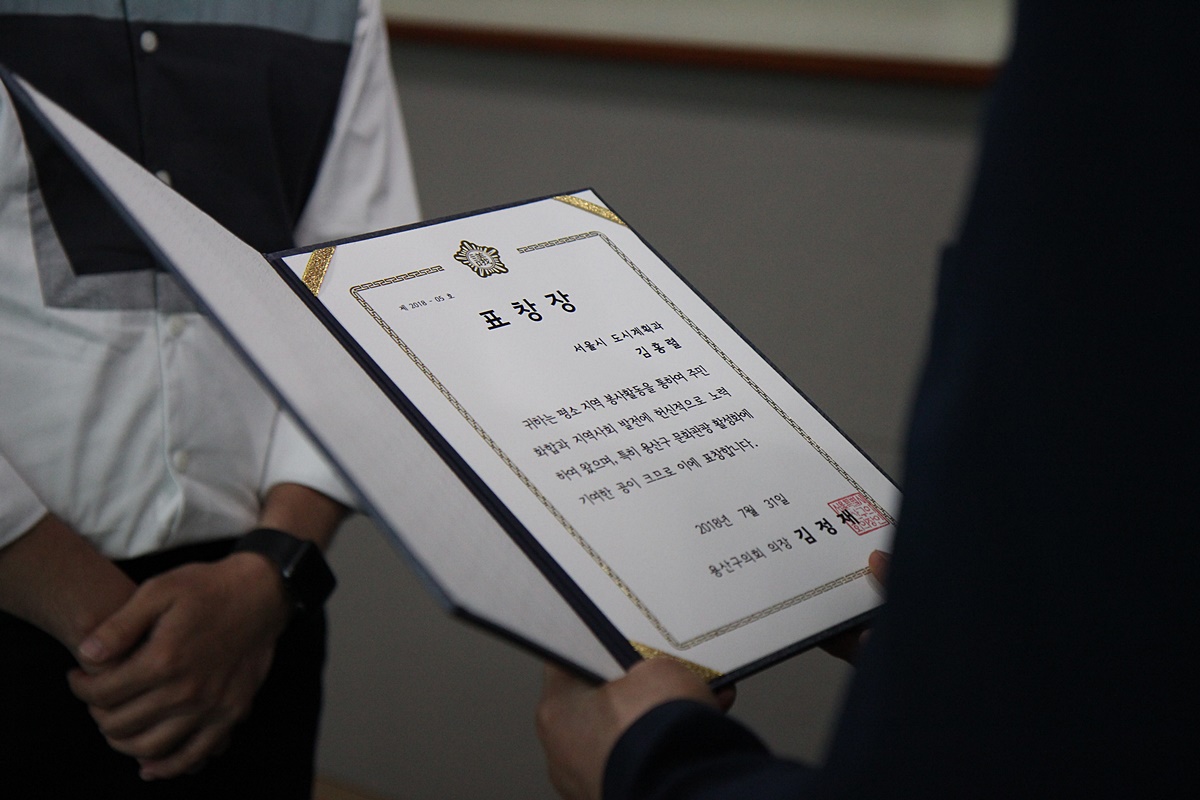 제 2018 - 05 호
표창장
서울시 도시계획과
김홍렬
귀하는 평소 지역 봉사활동을 통하여 주민
화합과 지역사회 발전에 헌신적으로 노력
하여 왔으며, 특히 용산구 문화관광 활성화에
기여한 공이 크므로 이에 표창합니다.
2018년 7월 31일
용산구의회 의장 김정재